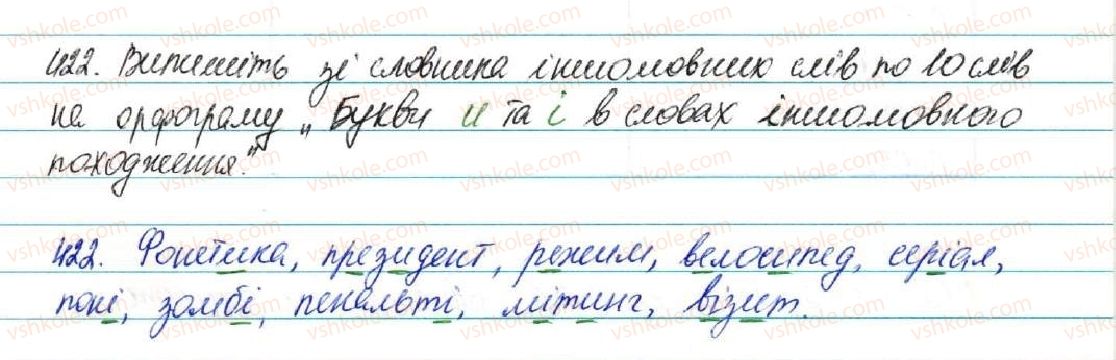 422. Випишіть зі словника іншомовних слів по 10 слів
на орфограму „Букви и та і в словах іншомовного
походження."
422. Фонетика, президент, режим, велосипед, серіал,
поні, зомбі, пенальті, мітинг, візит.